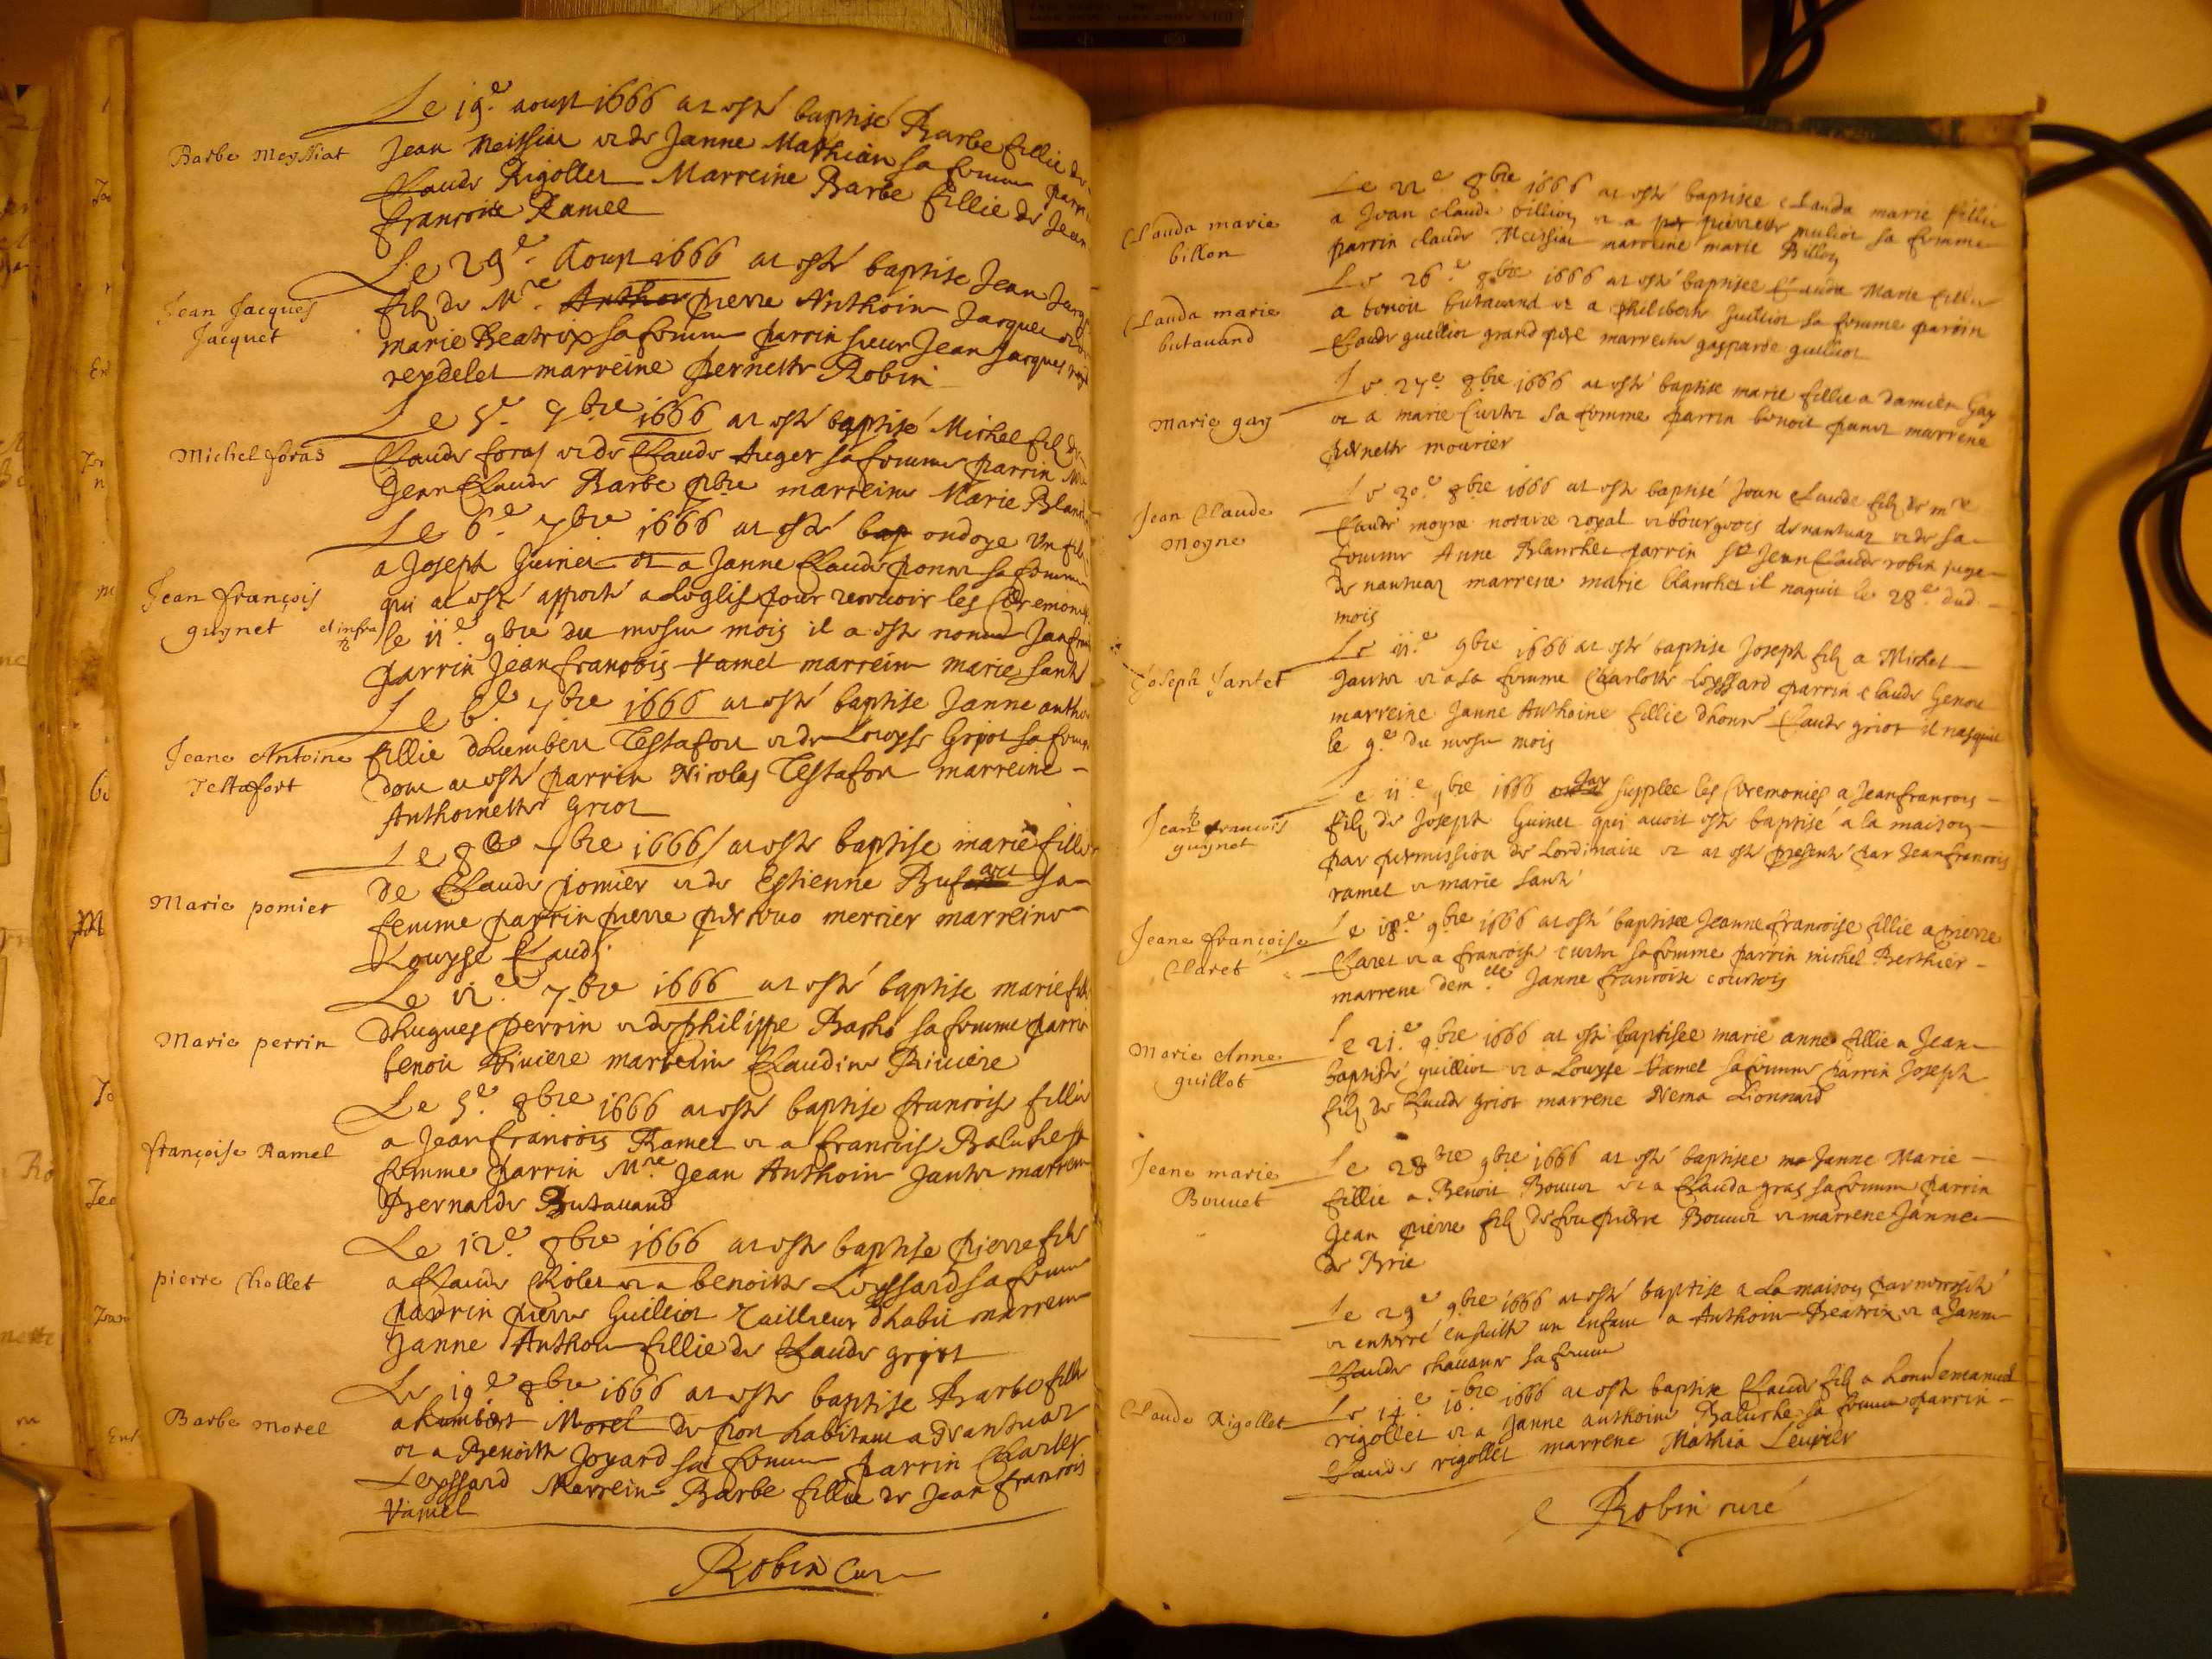 Le 19e aoust 1666 at esté baptisé Barbe fillie de
Barbe Meyssiat
Jean Meissiat et de Janne Mathieu sa femme parrin
Claude Rigollet Marreine Barbe fillie de Jean
françois Ramel
Le 29e Aoust 1666 at esté baptise Jean Jacq
Jean Jacques
Jacquet
filz de Mre Anthoi pierre Anthoine Jacquet et de
marie Beatrix sa femme parrin sieur Jean Jacques
reydelet marreine pernette Robin
Le 5e 7bre 1666 at esté baptisé Michel filz de
Michel foras
Claude foras et de Claude Auger sa femme parrin Mre
Jean Claude Barbe pbre marreine Marie Blan
Le 6e 7bre 1666 at esté bap ondoye un filz
a Joseph Guinet et a Janne Claude ponet sa femme
Jean françois
guynet et infra
qui at esté apporté a Leglise pour recevoir les Ceremonies
le 11e 9bre du mesme mois il a esté nommé Jan fran
parrin Jean françois Ramel marreine marie sante
Le 6e 7bre 1666 at esté baptise Janne antho
Jeane Antoine
Testafort
fillie dhumbert Testafort et de Louyse Griot sa femme
dont at esté parrin Nicolas Testafort marreine
Anthoinette Griot
Le 8e 7bre 1666 at esté baptise marie fillie
Marie pomier
de Claude pomier et de Estienne Buf sa
femme parrin pierre mercier marreine
Louyse Claude
Le 12e 7bre 1666 at esté baptise marie fill
Marie perrin
dhugues perrin et de philippe Bacho sa femme parrin
benoit Riviere marreine Claudine Riviere
Le 5e 8bre 1666 at esté baptise françoise fillie
françoise Ramel
a Jean françois Ramel et a françoise Baluche sa
femme parrin Mre Jean Anthoine Jantet marreine
Bernarde Butavand
Le 12e 8bre 1666 at esté baptise pierre filz
pierre Chollet
a Claude Cholet et a benoite Loyssard sa femme
parrin pierre Guilliot Tailleur dhabit marreine
Janne Anthoi fillie de Claude griot
Le 19e 8bre 1666 at esté baptise Barbe fillie
Barbe Morel
a humbert Morel de pon habitant a Nantuaz
et a Benoite Joyard sa femme parrin Charles
Leyssard Marreine Barbe fillie de Jean françois
Ramel
Robin Curé
Le 22e 8bre 1666 at esté baptisee Clauda marie fillie
Clauda marie
billon
a Jean Claude billion et a per pierrette muliot sa femme
parrin claude Meissiat marreine marie Billion
Le 26e 8bre 1666 at esté baptisee Clauda Marie fillie
Clauda marie
butavand
a benoit butavand et a philiberte guilliot sa femme parrin
Claude guilliot grand pere marreine gasparde guilliot
Le 27e 8bre 1666 at esté baptise marie fillie a damien Gay
Marie gay
et a marie Curtet sa femme parrin benoit panet marrene
pernette mourier
Le 30e 8bre 1666 at esté baptisé Jean Claude filz de mre
Jean Claude
Moyne
Claude moyne notaire royal et bourgeois de nantuaz et de sa
femme Anne Blanchet parrin Sr Jean Claude robin juge
de nantuaz marrene marie blanchet il naquit le 28e dud
mois
Le 11e 9bre 1666 at esté baptise Joseph filz a Michel
Joseph Jantet
Jantet et a sa femme Charlotte Loyssard parrin claude Genou
marreine Janne Anthoine fillie dhonn Claude griot il nasquit
le 9e du mesme mois
Le 11e 9bre 1666 Jay supplee les Ceremonies a Jean françois
Jean françois
guynet
filz de Joseph Guinet qui avoit esté baptisé a la maison
par permission de Lordinaire et at esté presenté par Jean françois
ramel et marie sante
Le 18e 9bre 1666 at esté baptisee Jeanne françoise fillie a pierre
Jeane françoise
Claret
Claret et a françoise curtet sa femme parrin michel Berthier
marrene demelle Janne françoise courtois
Le 21e 9bre 1666 at esté baptisee marie anne fillie a Jean
Marie Anne
guillot
baptiste guilliot et a Louyse Ramel sa femme parrin Joseph
filz de Claude griot marrene Nema Lionnard
Le 28bre 9bre 1666 at esté baptisee ma Janne Marie
Jeane marie
Bouvet
fillie a Benoit Bouvet et a Clauda gras sa femme parrin
Jean pierre filz de feu pierre Bouvet et marrene Janne
de Brie
Le 29e 9bre 1666 at esté baptise a La maison par necessité
et enterré ensuitte un Enfant a Anthoine Beatrix et a Janne
Claude chavane sa femme
Le 14e 10bre 1666 at esté baptise Claude filz a honn emanuel
Claude Rigollet
rigollet et a Janne anthoine Baluche sa femme parrin
Claude rigollet marrene Mathia Leuvier
Robin curé